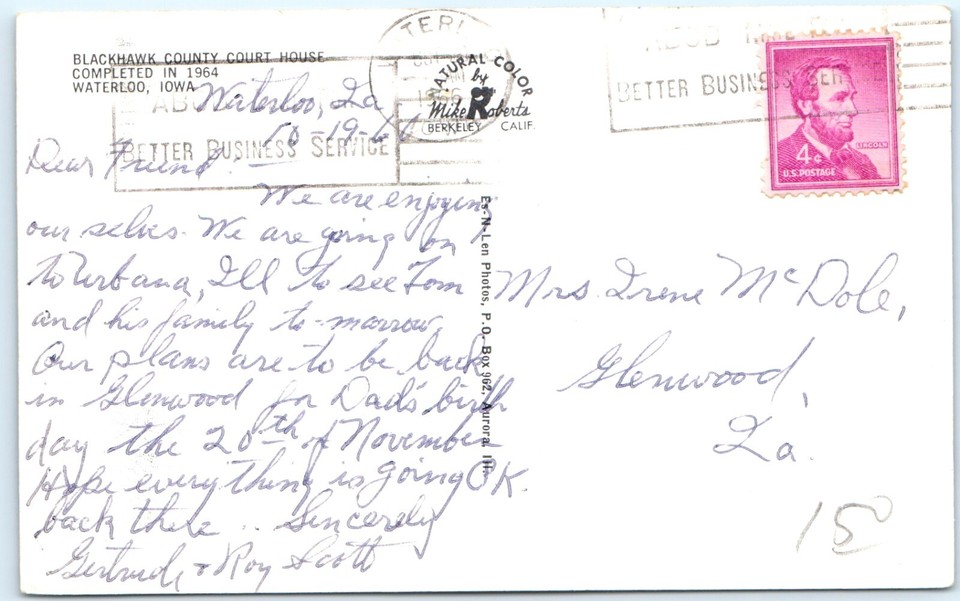 BLACKHAWK COUNTY COURT HOUSE
COMPLETED IN 1964
WATERLOO, IOWA
Waterloo, Ia
10-19-66
Dear Friend:
We are enjoying
our selves. We are going on
to Urbana, Ill to see Tom
and his family to-morrow.
Our plans are to be back
in Glenwood for Dad's birth
day the 20th of November
Hope everything is going OK.
back there.. Sincerely
Gertrude & Roy Scott
BETTER BUSINESS SERVICE
NATURAL COLOR
by
Mike Roberts
BERKELEY CALIF.
Es-N-Len Photos, P.O. Box 962, Aurora, Ill.
BETTER BUSINESS SERVICE
LINCOLN
4¢
U.S. POSTAGE
Mrs. Irene McDole,
Glenwood,
Ia.
150